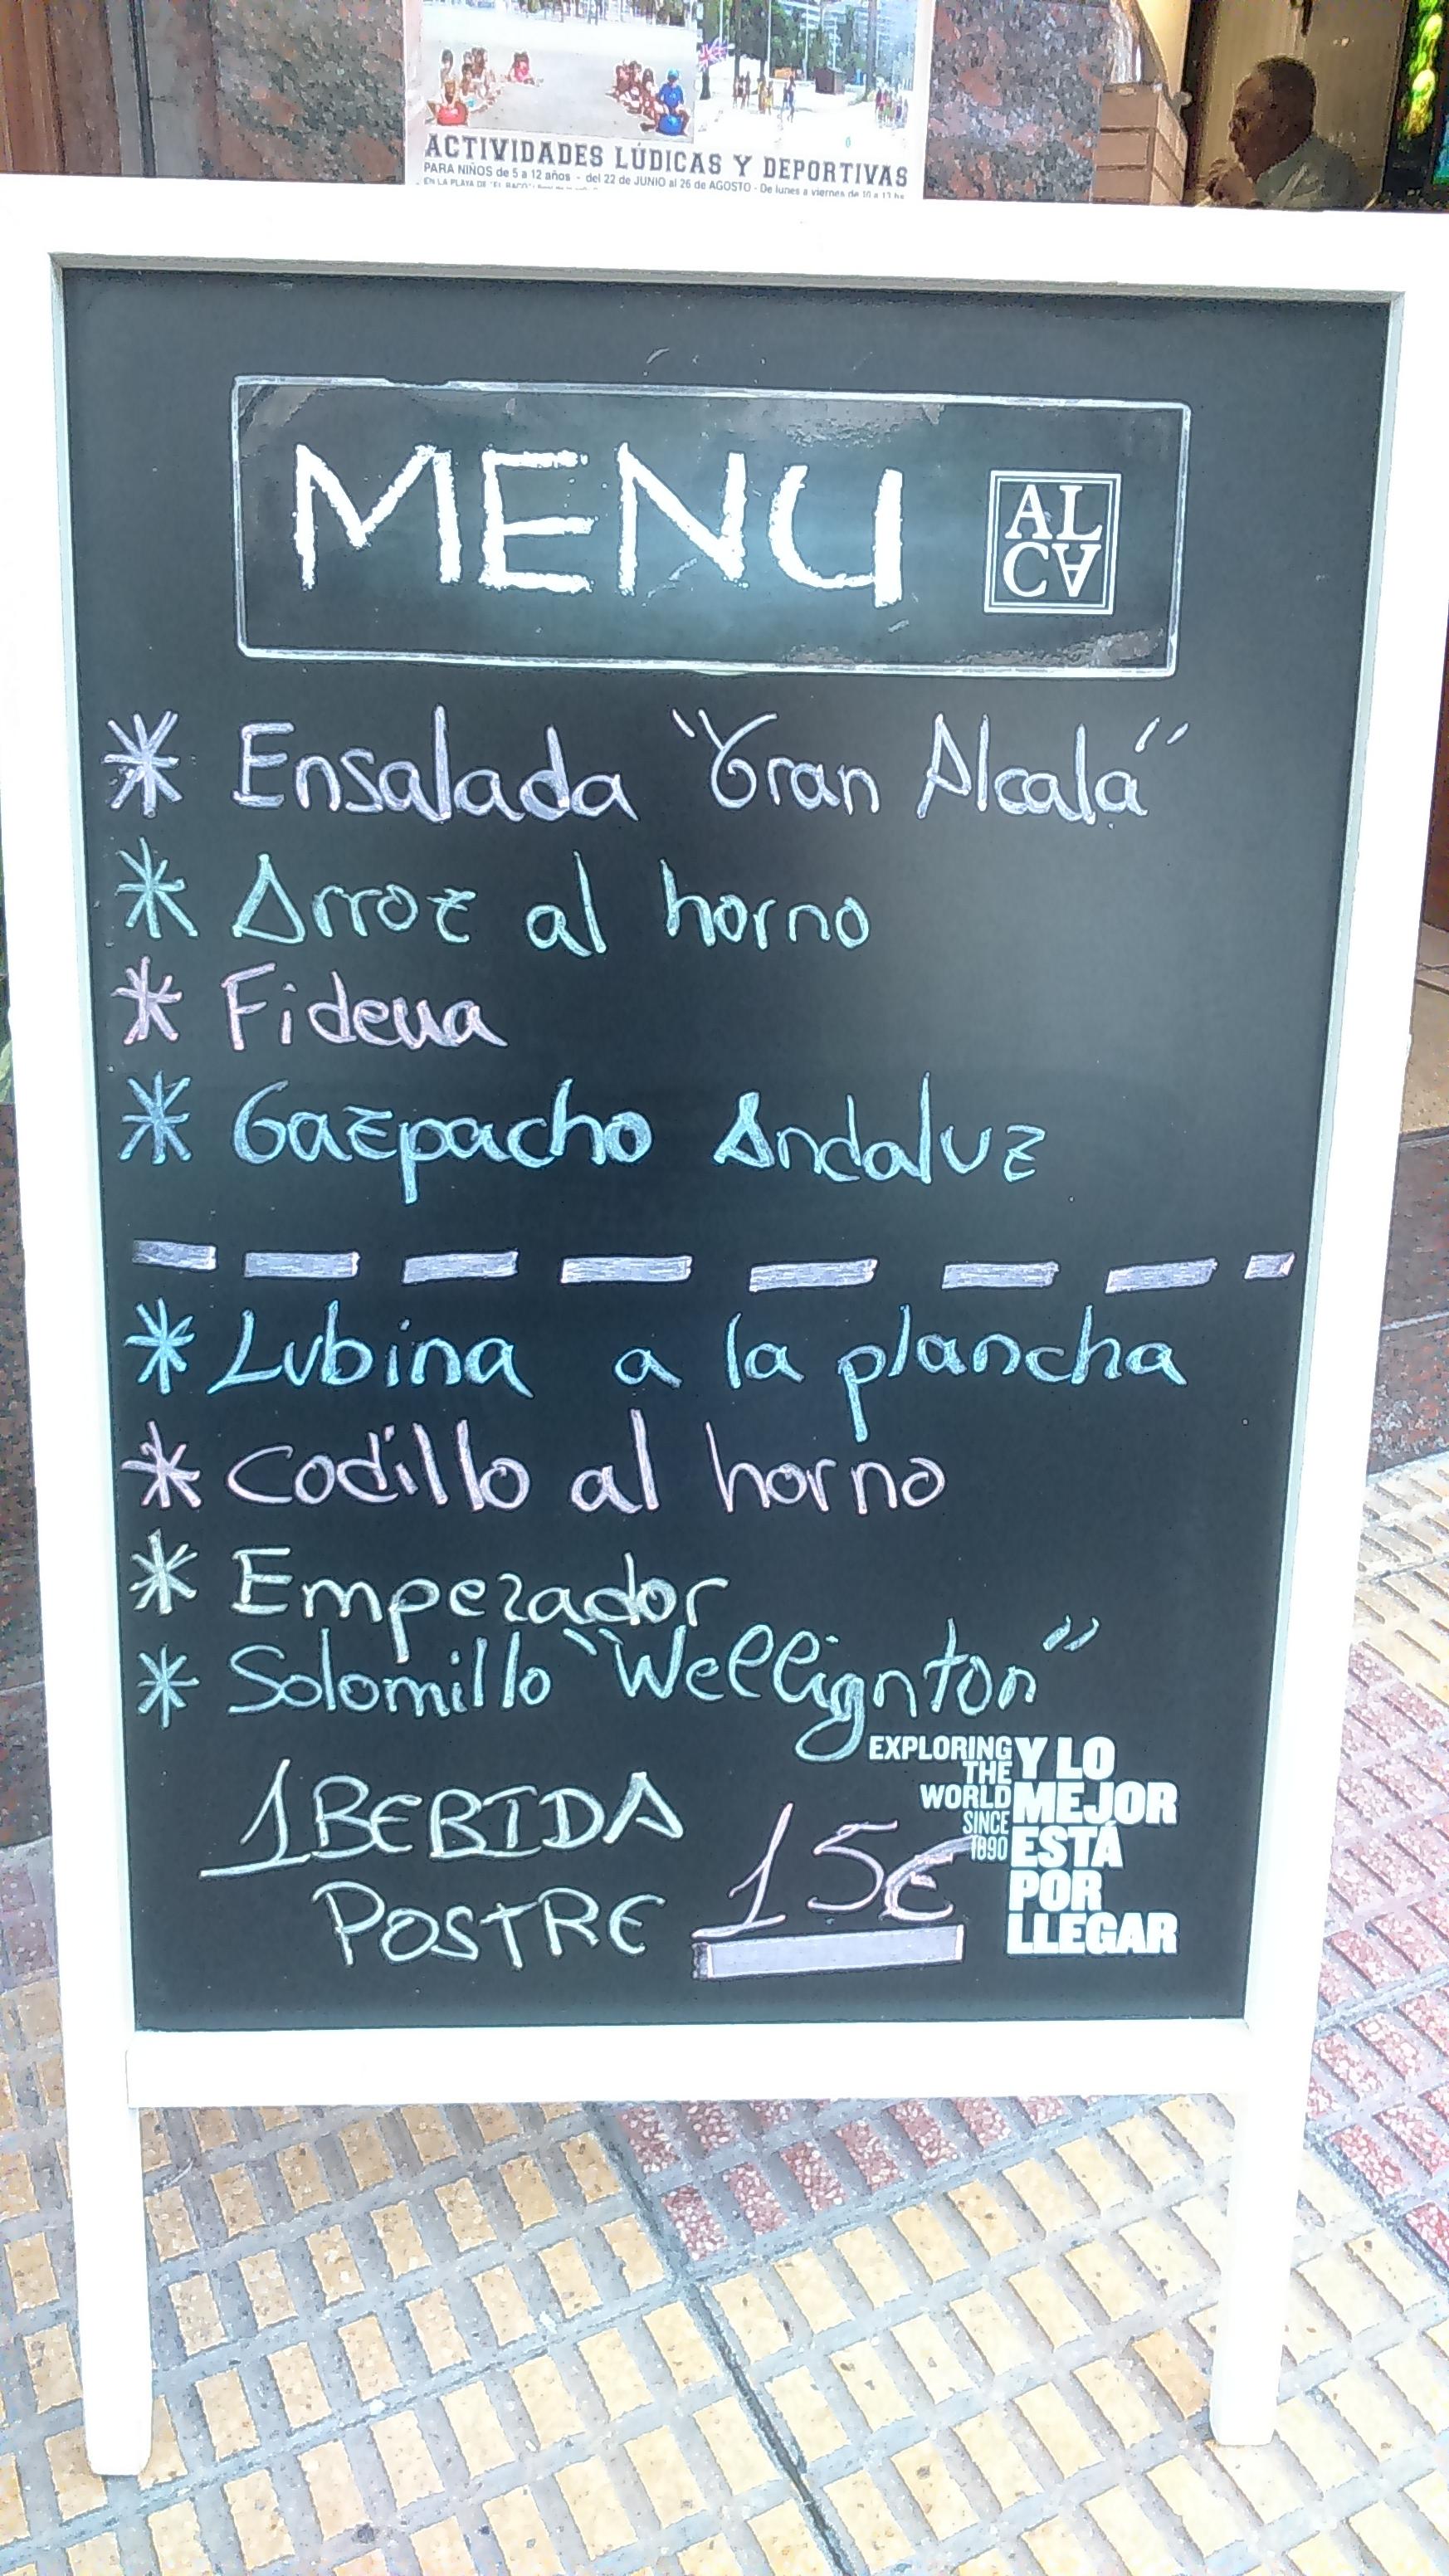 ACTIVIDADES LÚDICAS Y DEPORTIVAS
PARA NIÑOS de 5 a 12 años - del 22 de JUNIO al 26 de AGOSTO - De lunes a viernes de 10 a 13 hs
EN LA PLAYA DE "EL RACÓ"
MENU
AL
CA
* Ensalada "Gran Alcalá"
* Arroz al horno
* Fideua
* Gazpacho Andaluz
* Lubina a la plancha
* Codillo al horno
* Emperador
* Solomillo "Wellignton"
1 BEBIDA
POSTRE
15€
EXPLORING
THE
WORLD
SINCE
1890
Y LO
MEJOR
ESTÁ
POR
LLEGAR